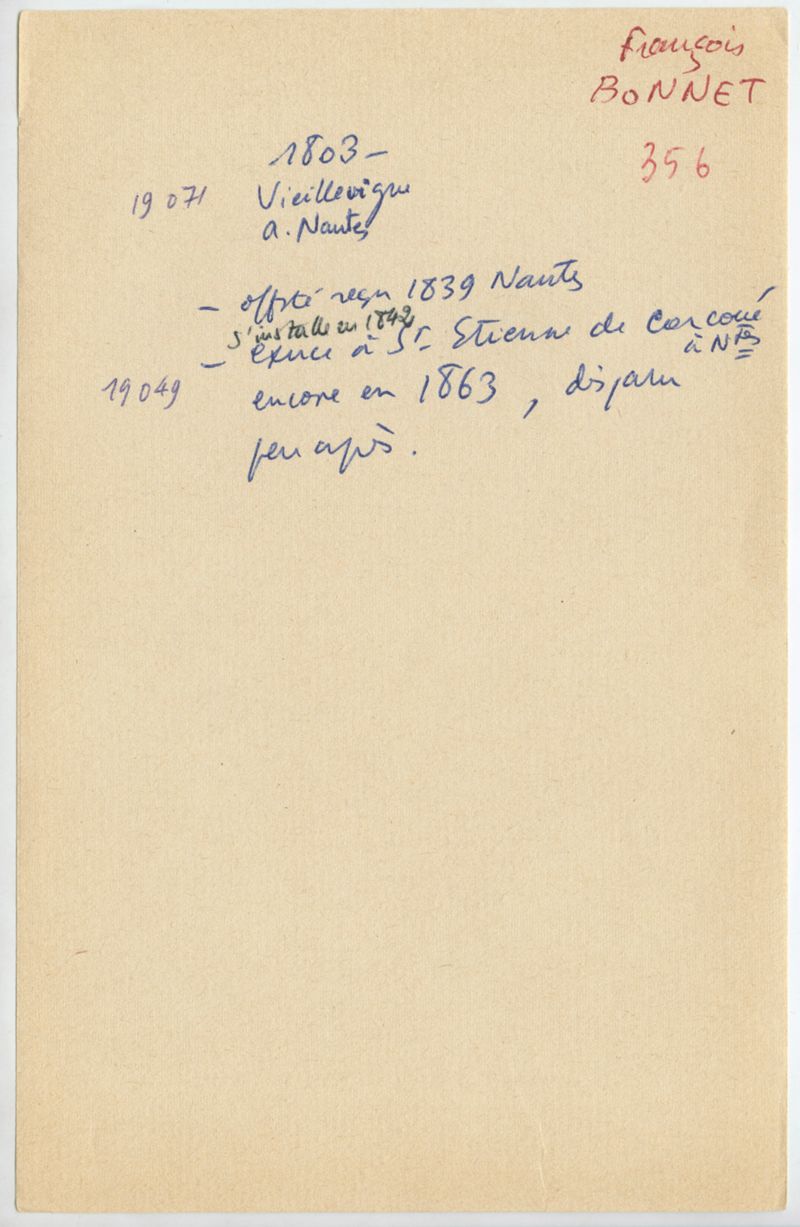 François
BONNET
356
1803 -
19071 Vieillevigne
a. Nantes
- offsté reçu 1839 Nantes
s'installe en 1842
- exerce à St Etienne de Corcoué
à Ntes
19049 encore en 1863, disparu
peu après.